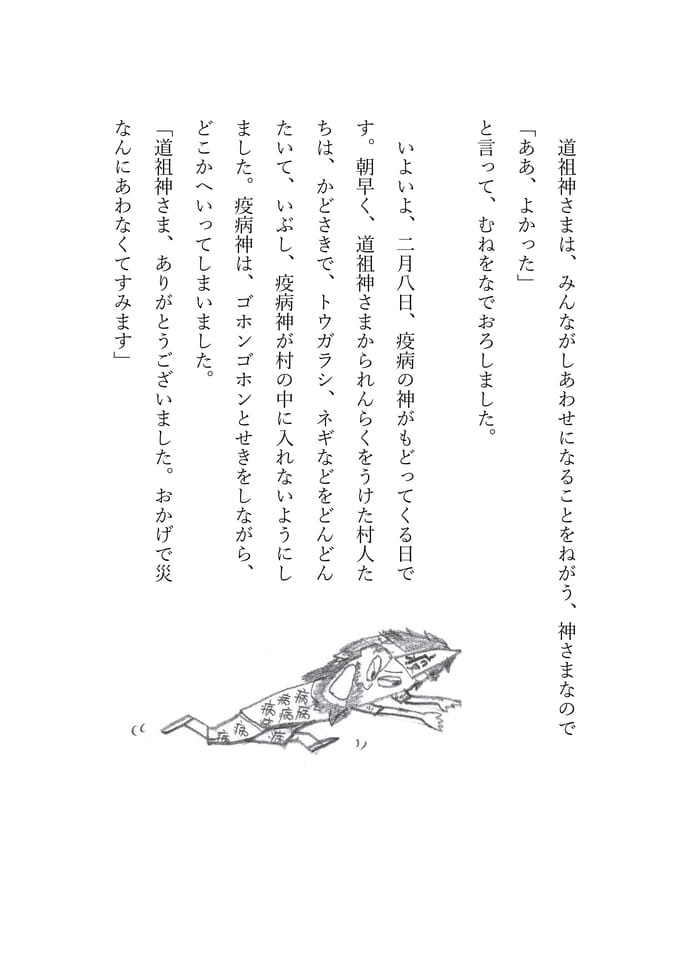 道祖神さまは、みんながしあわせになることをねがう、神さまなので
「ああ、よかった」
と言って、むねをなでおろしました。
いよいよ、二月八日、疫病の神がもどってくる日で
す。朝早く、道祖神さまかられんらくをうけた村人た
ちは、かどさきで、トウガラシ、ネギなどをどんどん
たいて、いぶし、疫病神が村の中に入れないようにし
ました。疫病神は、ゴホンゴホンとせきをしながら、
どこかへいってしまいました。
「道祖神さま、ありがとうございました。おかげで災
なんにあわなくてすみます」
病
病病病
病病病
病病病